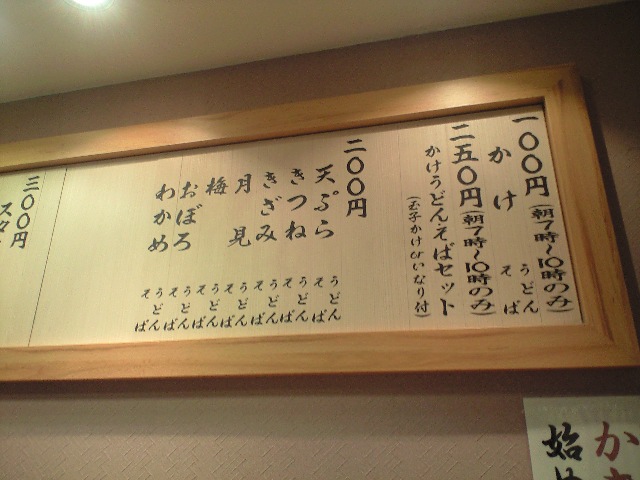 一〇〇円(朝7時〜10時のみ)
かけ うどん そば
二五〇円(朝7時〜10時のみ)
かけうどんそばセット
(玉子かけorいなり付)
二〇〇円
天ぷら うどん そば
きつね うどん そば
きざみ うどん そば
月見 うどん そば
梅 うどん そば
おぼろ うどん そば
わかめ うどん そば
三〇〇円
スタ
か
始め